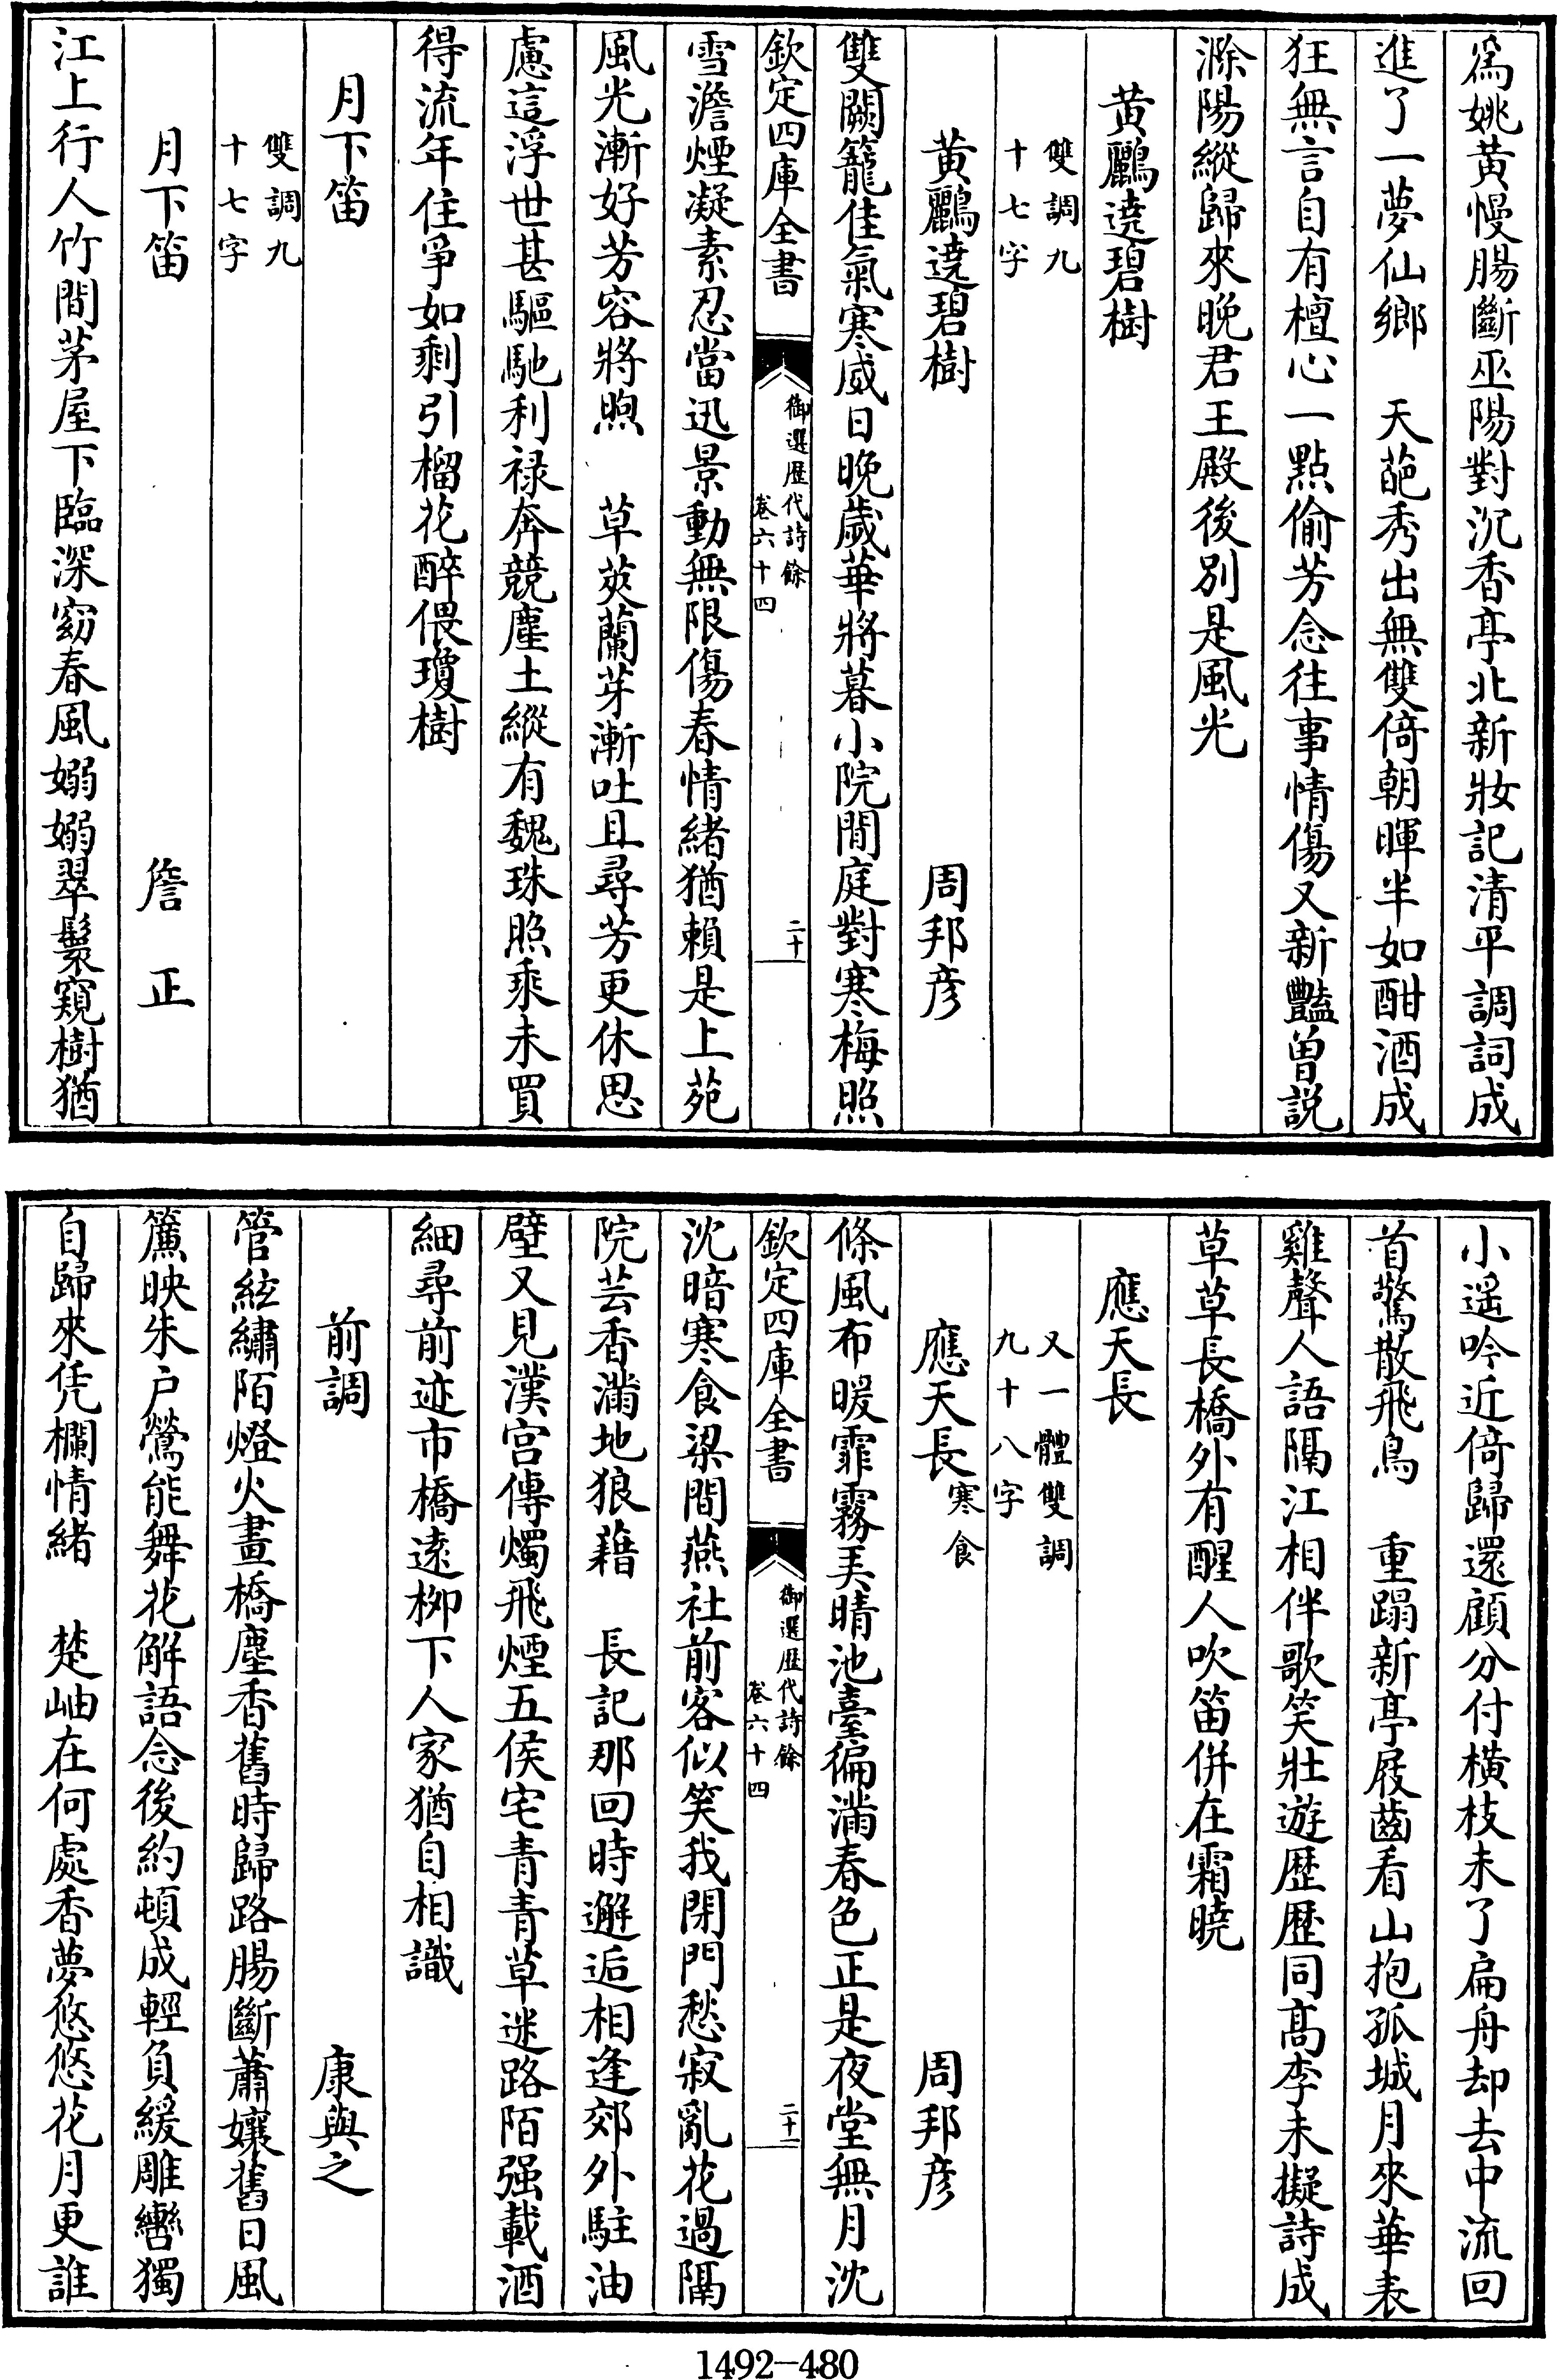 爲姚黄慢腸斷巫陽對沉香亭北新妝記清平調詞成
進了一夢仙鄉　天葩秀出無雙倚朝暉半如酣酒成
狂無言自有檀心一點偷芳念往事情傷又新豔曽説
滁陽縱歸來晚君王殿後別是風光
黄鸝遶碧樹
雙調九
十七字
黄鸝遶碧樹　周邦彦
雙闕籠佳氣寒威日晚歲華將暮小院閒庭對寒梅照
欽定四庫全書
御選歴代詩餘
卷六十四
二十
雪澹煙凝素忍當迅景動無限傷春情緒猶賴是上苑
風光漸好芳容將煦　草莢蘭芽漸吐且尋芳更休思
慮這浮世甚驅馳利禄奔競塵土縱有魏珠照乗未買
得流年住爭如剩引榴花醉偎瓊樹
月下笛
雙調九
十七字
月下笛　詹正
江上行人竹間茅屋下臨深窈春風嫋嫋翠鬟窺樹猶
小遥吟近倚歸還顧分付横枝未了扁舟却去中流回
首驚散飛鳥　重蹋新亭屐齒看山抱孤城月來華表
雞聲人語隔江相伴歌笑壯遊歴歴同髙李未擬詩成
草草長橋外有醒人吹笛併在霜曉
應天長
又一體雙調
九十八字
應天長 寒食　周邦彦
條風布暖霏霧弄晴池臺徧滿春色正是夜堂無月沈
欽定四庫全書
御選歴代詩餘
卷六十四
二十一
沈暗寒食梁間燕社前客似笑我閉門愁寂亂花過隔
院芸香滿地狼藉　長記那回時邂逅相逢郊外駐油
壁又見漢宫傳燭飛煙五侯宅青青草迷路陌强載酒
細尋前迹市橋遠栁下人家猶自相識
前調　康與之
管絃繡陌燈火畫橋塵香舊時歸路腸斷蕭孃舊日風
簾映朱户鶯能舞花解語念後約頓成輕負緩雕轡獨
自歸來凭欄情緒　楚岫在何處香夢悠悠花月更誰
1492—480